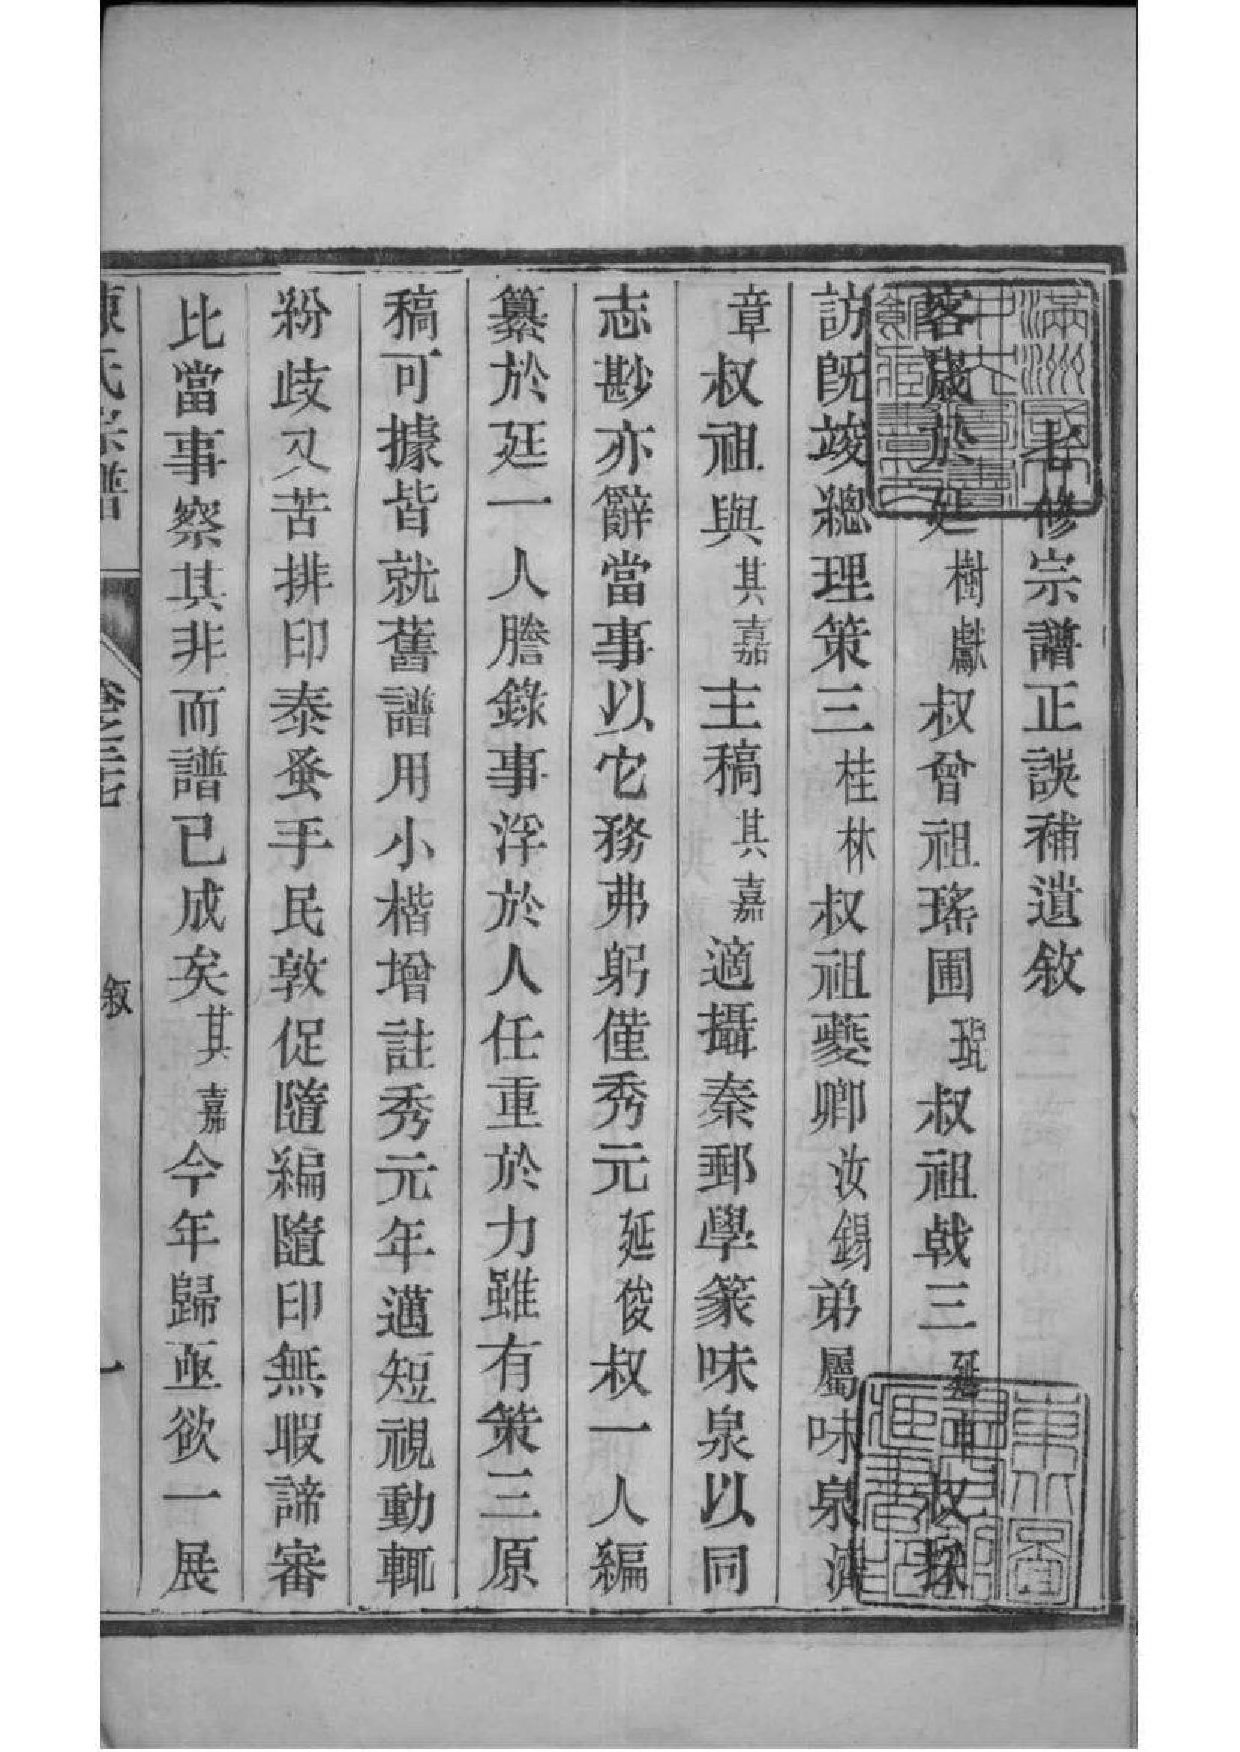 老修宗譜正誤補遺敘
客歲於廷樹獻叔曾祖瑤圃琨叔祖戟三延車叔採
訪既竣總理策三桂林叔祖夔卿汝錫弟屬味泉濟
章叔祖與其嘉主稿其嘉適攝秦郵學篆味泉以同
志尠亦辭當事以它務弗躬僅秀元延俊叔一人編
纂於廷一人謄錄事浮於人任重於力雖有策三原
稿可據皆就舊譜用小楷增註秀元年邁短視動輒
紛歧又苦排印泰蚤手民敦促隨編隨印無暇諦審
比當事察其非而譜已成矣其嘉今年歸亟欲一展
陳氏宗譜
卷之三七
敘
一